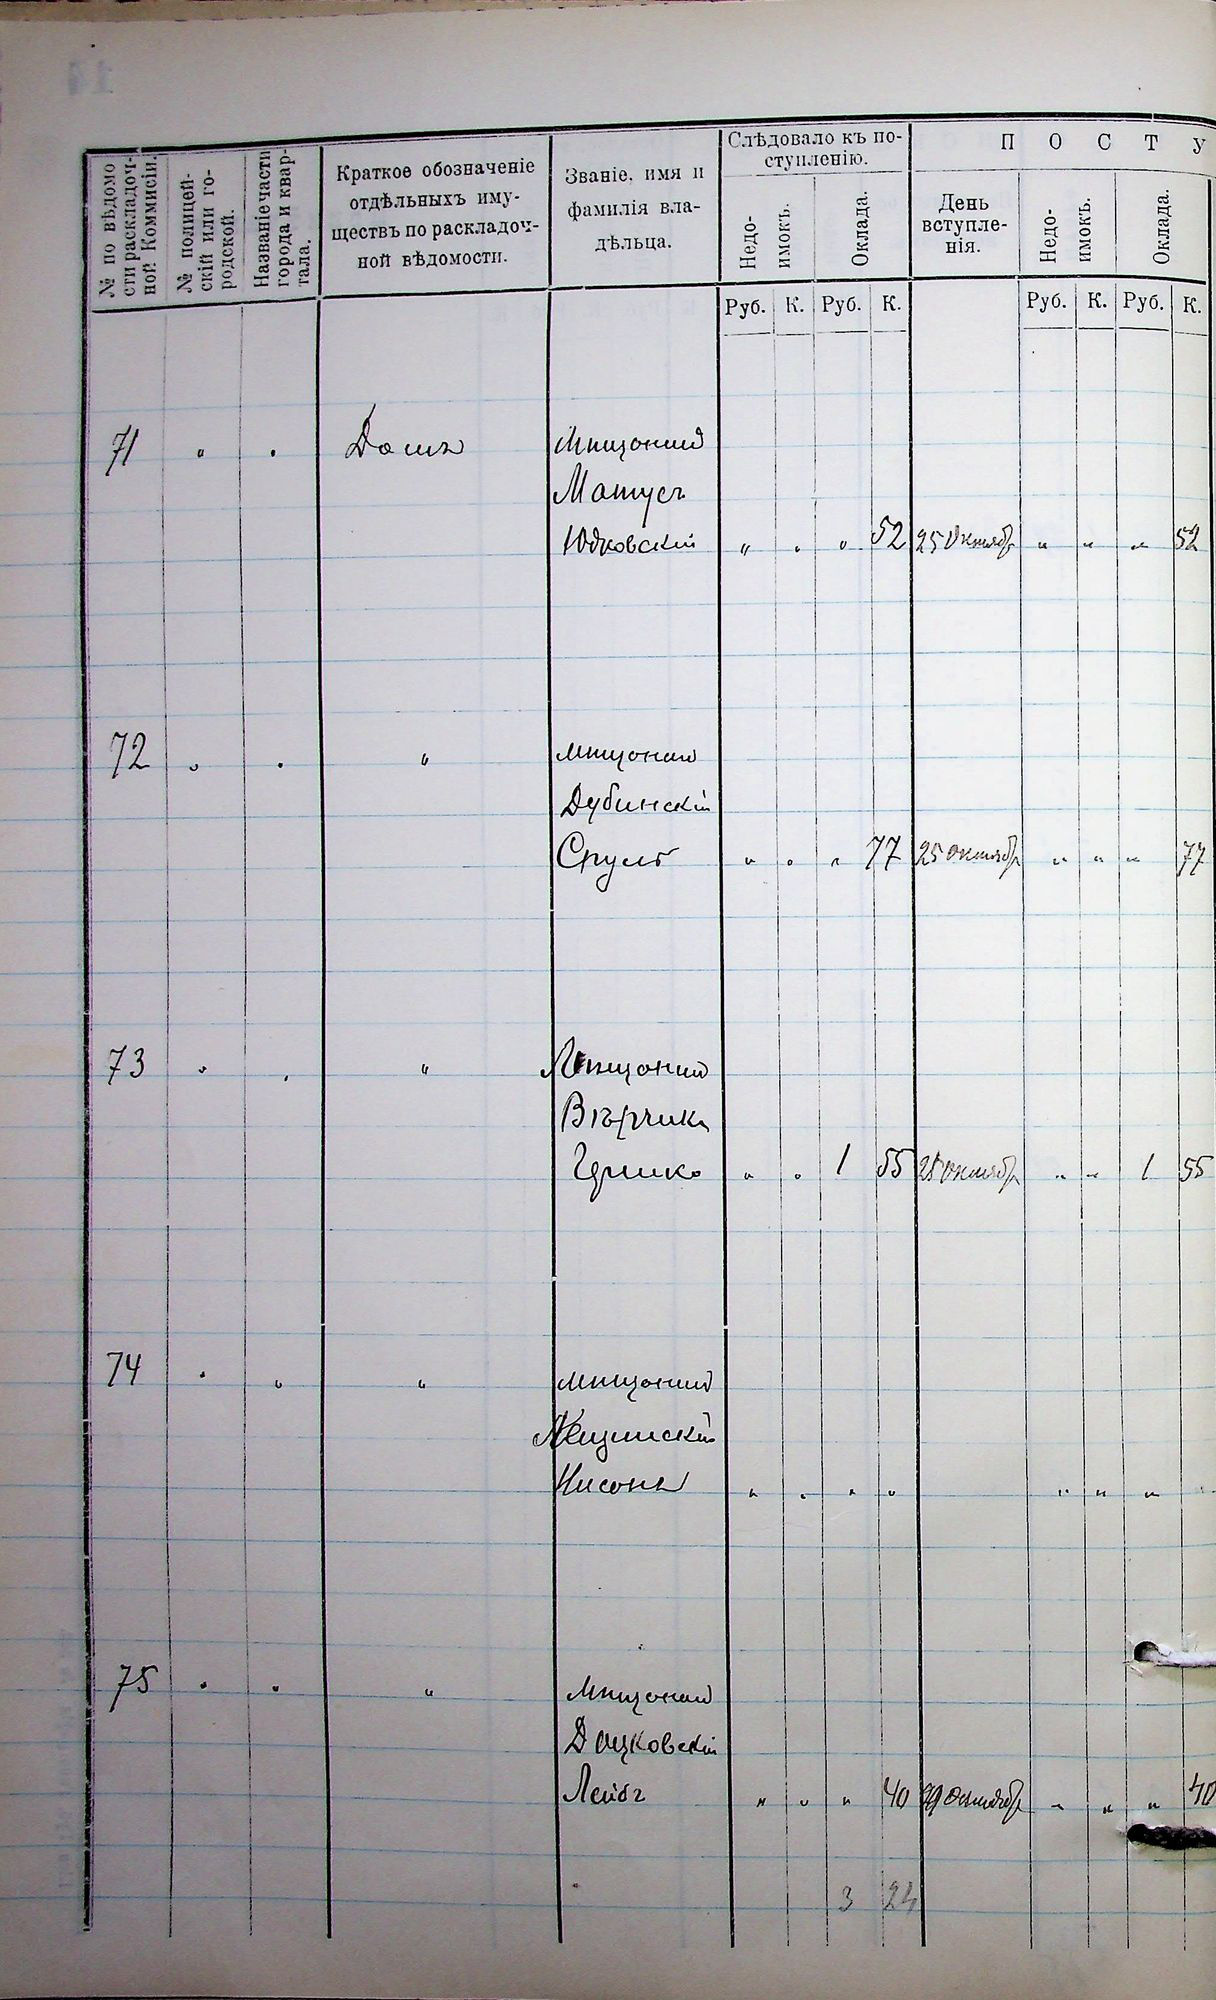 № по вѣдомо
сти раскладоч-
ной Коммисіи.
№ полицей-
скій или го-
родской.
Названіе части
города и квар-
тала.
Краткое обозначеніе
отдѣльныхъ иму-
ществъ по раскладоч-
ной вѣдомости.
Званіе, имя и
фамилія вла-
дѣльца.
Слѣдовало къ по-
ступленію.
Недо-
имокъ.
Оклада.
П О С Т У
День
вступле-
нія.
Недо-
имокъ.
Оклада.
Руб. К. Руб. К. Руб. К. Руб. К.
71 " " Домъ Мѣщанинъ
Матусъ
Юдковскій " " " 52 25 Октябр " " " 52
72 " " " мѣщанин
Дубинскій
Сруль " " " 77 25 октябр " " " 77
73 " " " Мѣщанин
Вѣрникъ
Гершко " " 1 55 25 октябр " " 1 55
74 " " " мѣщанин
Нисонъ " " " " " " "
75 " " " Мѣщанин
Дацковскій
Лейбъ " " " 40 29 октябр " " " 40
3 24